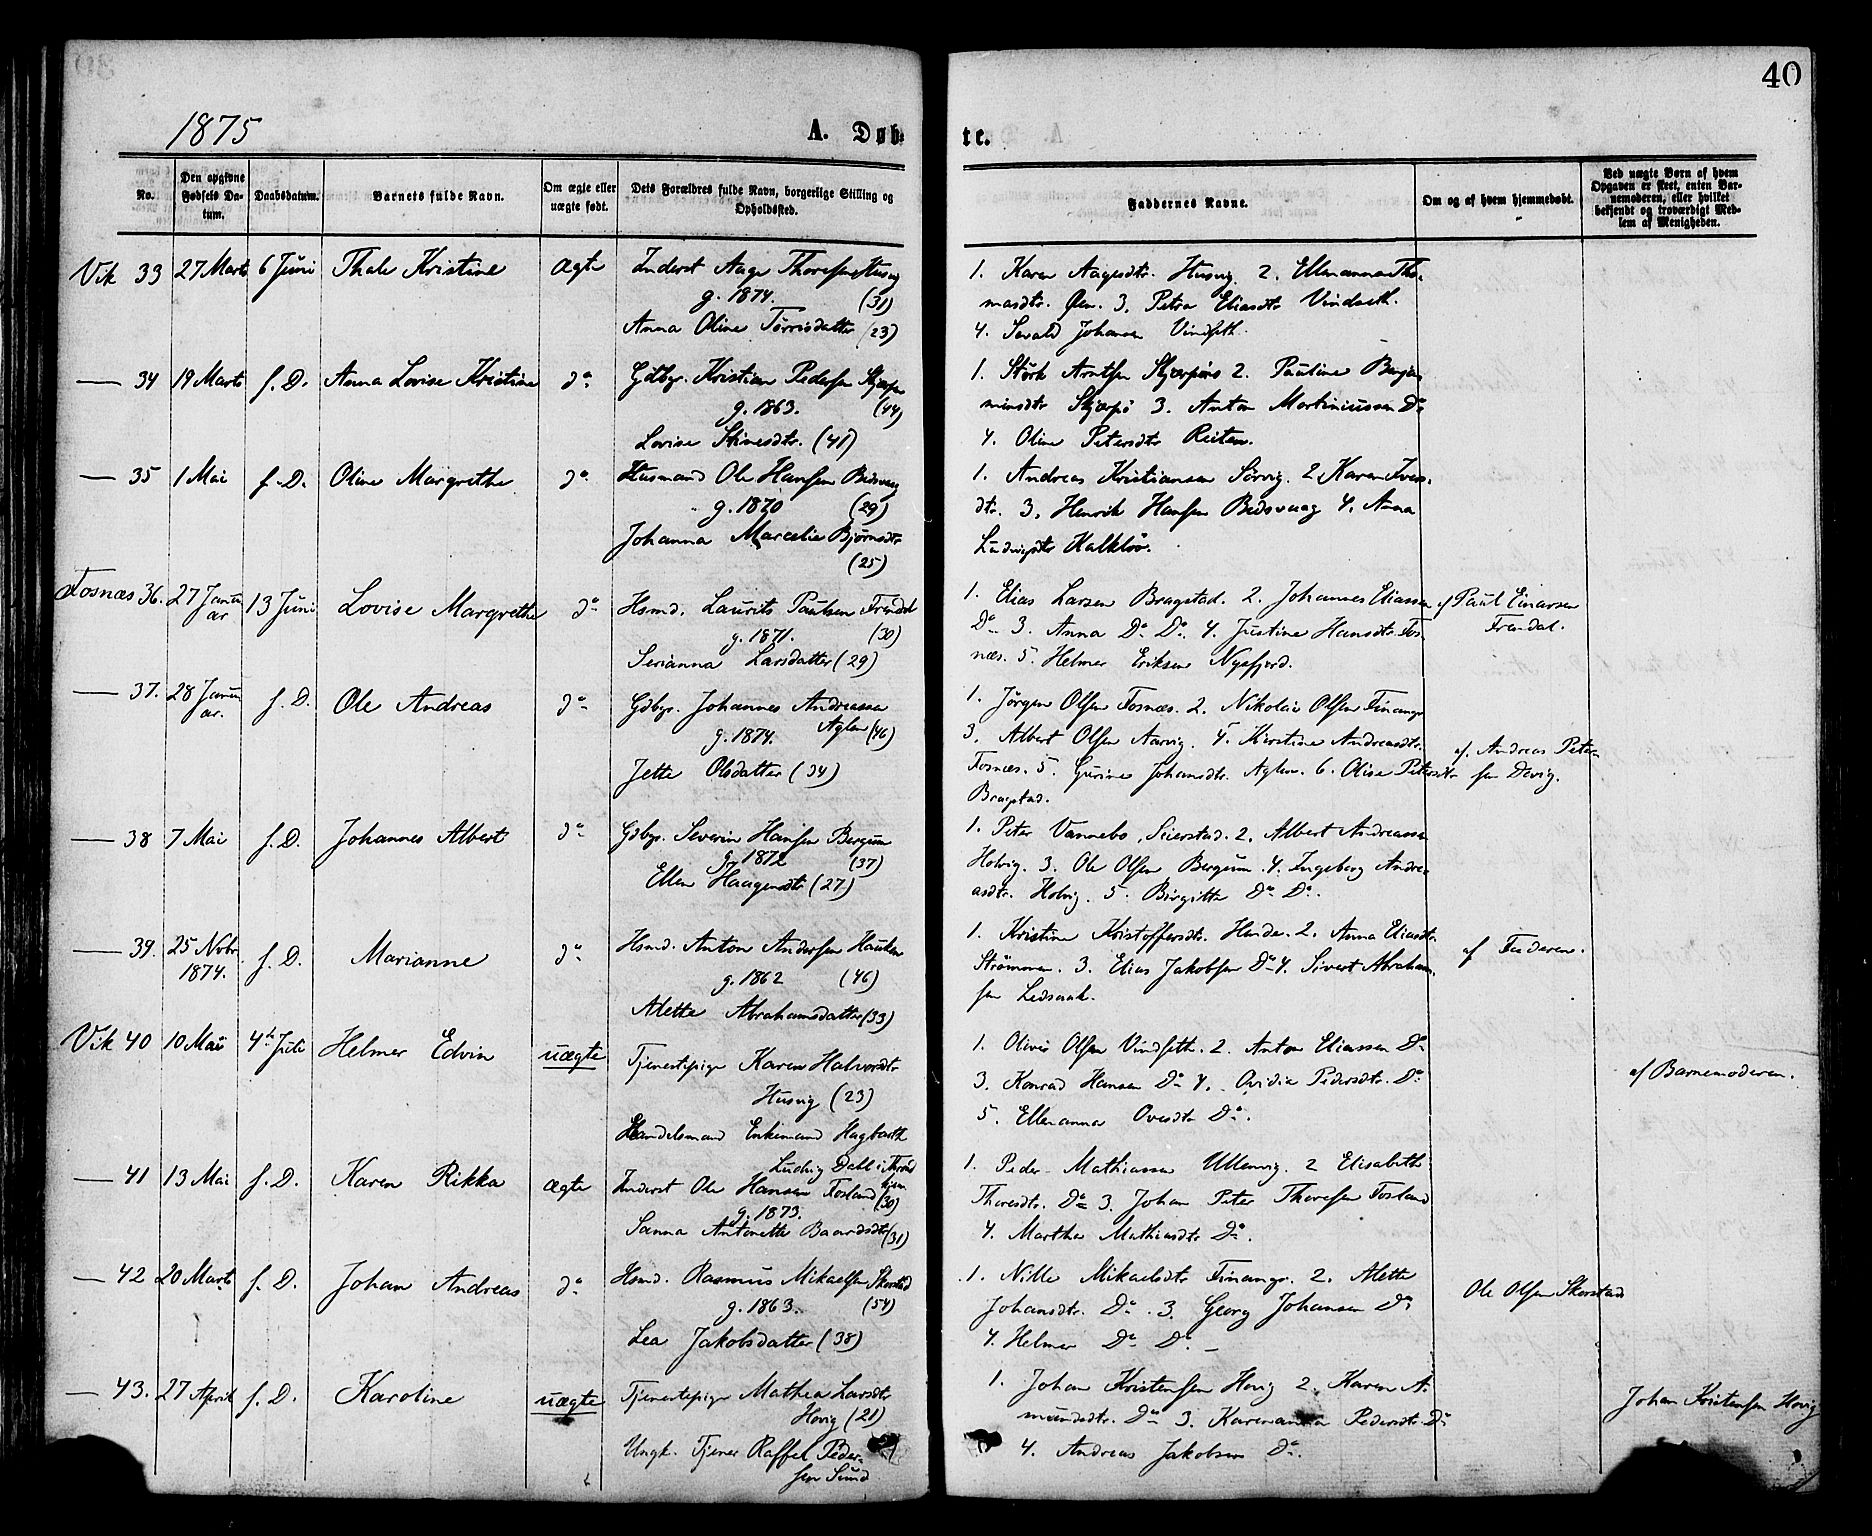 40
1875
A. Døbte.
No.
Den opgivne Fødsels Datum.
Daabsdatum.
Barnets fulde Navn.
Om ægte eller uægte født.
Dets Forældres fulde Navn, borgerlige Stilling og Opholdssted.
Faddernes Navne.
Om og af hvem hjemmedøbt.
Ved uægte Børn af hvem Opgaven er skeet, enten Barnemoderen, eller hvilket bekjendt og troværdigt Medlem af Menigheden.
Vik 33 27 Marts 6 Juni Thale Kristine ægte Inderst Aage Thoresen Husvig
g. 1874. (31)
Anna Oline Tørrisdatter (23)
1. Karen Aagesdtr. Husvig. 2. Ellenanna Tho-
masdtr. Øen. 3. Petra Eliasdtr Vindseth.
4. Johansen Vindseth.
— 34 19 Marts f. D. Anna Lovise Kristine do Gdbgr. Kristian Pedersen
g. 1863. (44)
Lovise Stinesdtr. (41)
1. Størk Arntsen 2. Pauline Benja-
minsdtr Skjærpö 3. Anton Martiniussen Do
4. Oline Petersdtr Reiten.
— 35 1 Mai f. D. Oline Margrethe do Husmand Ole Hansen Bedsvaag
g. 1870 (29)
Johanna Marcelie Bjørnsdtr
(25)
1. Andreas Kristiansen Sörvig. 2. Karen Ivers-
dtr. 3. Henrik Hansen Bedsvaag 4. Anna
Ludvigsdtr Kalkløv.
Fosnæs 36. 27 Januar 13 Juni Lovise Margrethe do Hsmd. Laurits Paulsen Frendal
g. 1871. (30)
Serianna Larsdatter (29)
1. Elias Larsen Bragstad. 2. Johannes Eliassen
Do 3. Anna Do Do. 4. Justine Hansdtr. Fos-
næs. 5. Helmer Eriksen
af Paul Einarsen
Frendal.
— 37. 28 Januar. f. D. Ole Andreas do Gdbgr. Johannes Andreassen
Aglen (46)
g. 1874.
Jette Olsdatter (34)
1. Jørgen Olsen Fosnæs. 2. Nikolai Olsen Finange
3. Albert Olsen Aarvig. 4. Kirstine Andreasdtr.
Fosnæs. 5. Gurine Johansdtr. Aglen. 6. Olise Petersdtr
Bragstad.
af. Andreas Peter-
sen Devig.
— 38 7 Mai f. D. Johannes Albert do Gdbgr. Severin Hansen Bergum
g. 1872 (37)
Ellen Haagensdtr (27)
1. Peter Vannebo, Seierstad. 2. Albert Andreassen
Holvig. 3. Ole Olsen Bergum. 4. Ingeborg Andre-
asdtr. Holvig. 5. Birgitte Do Do.
— 39. 25 Novbr 1874. f. D. Marianne do Hsmd. Anton Andersen
g. 1862 (46)
Alette Abrahamsdatter (33)
1. Kristine Kristoffersdtr. 2. Anna Eliasdtr.
Strömmen. 3. Elias Jakobsen Do 4. Sivert Abraham-
sen
af Faderen.
Vik 40 10 Mai 4de Juli Helmer Edvin uægte Tjenestepige Karen Halvorsdtr
Husvig (23)
Handelsmand Enkemand Hagbarth
Ludvig Dahl i Thrond-
hjem
1. Olivie Olsen Vindseth. 2. Anton Eliassen Do
3. Konrad Hansen Do 4. Ovidia Pedersdtr. Do
5. Ellenanna Ovesdtr Do.
af Barnemoderen.
— 41 13 Mai f. D. Karen Rikka ægte Inderst Ole Hansen Fosland (30)
g. 1873.
Sanna Antonette Baardsdtr (31)
1. Peder Mathiassen Ullenvig. 2 Elisabeth
Thoresdtr. Do 3. Johan Peter Thoresen Fosland
4. Martha Mathiasdtr Do.
— 42 20 Marts f. D. Johan Andreas do Hsmd. Rasmus Mikaelsen Skorstad
g. 1863. (54)
Lea Jakobsdatter (38)
1. Nille Mikaelsdtr Finange. 2. Alette
Johansdtr. Do. 3. Georg Johansen Do
4. Helmer Do Do. —
Ole Olsen Skorstad
— 43. 27 April f. D. Karoline uægte Tjenestepige Mathea Larsdtr
Hovig (21)
Ungk. Tjener Raffel Peder-
sen Sund
1. Johan Kristensen Hovig 2. Karen A-
mundsdtr. Do 3. Karenanna Pedersdtr. Do
4. Andreas Jakobsen Do.
Johan Kristensen Hovig